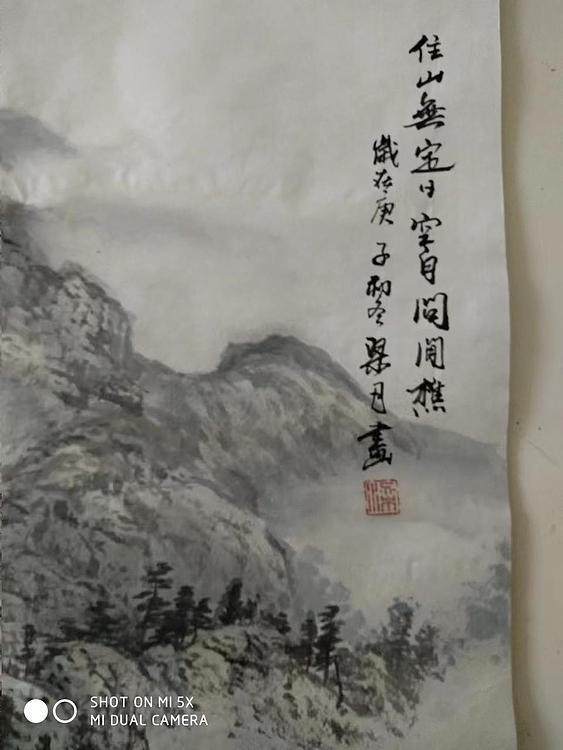 住山無定日空自問閒樵
歲在庚子初冬梁月畫
SHOT ON MI 5X
MI DUAL CAMERA